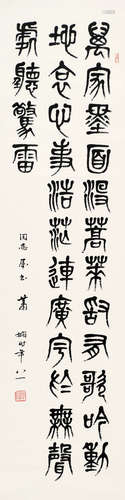 萬家墨面沒蒿萊敢有歌吟動
地哀心事浩茫連廣宇於無聲
處聽驚雷
蕭嫻時年八一